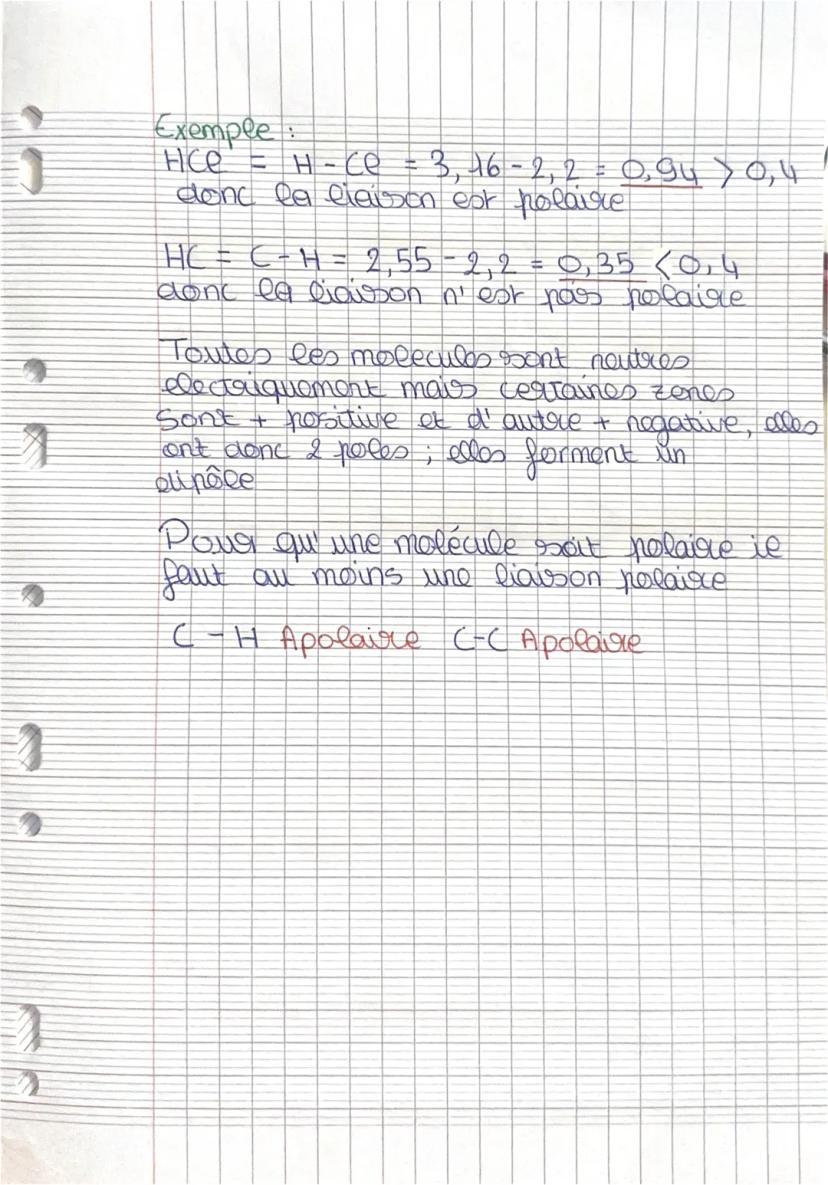 Exemple :
HCl = H - Cl = 3,16 - 2,2 = 0,94 > 0,4
donc la liaison est polaire
HC = C - H = 2,55 - 2,2 = 0,35 < 0,4
donc la liaison n'est pas polaire
Toutes les molecules sont neutres
electriquement mais certaines zones
sont + positive et d'autre + negative, elles
ont donc 2 poles ; elles forment un
dipôle
Pour qu'une molécule soit polaire il
faut au moins une liaison polaire
C - H Apolaire C-C Apolaire